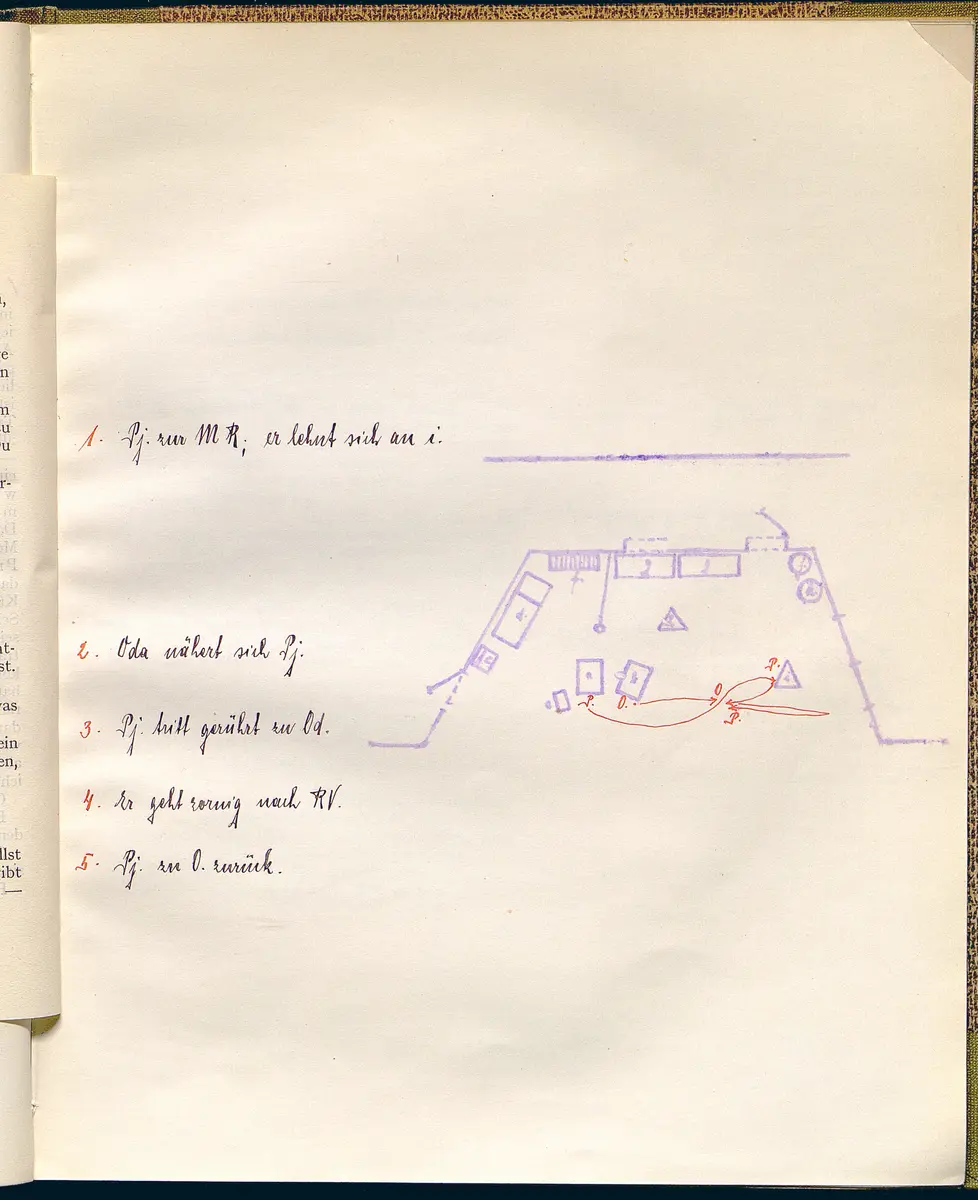 1. Pj. zur M R; er lehnt sich an i.
2. Oda nähert sich Pj.
3. Pj. tritt gerührt zu Od.
4. Er geht zornig nach RV.
5. Pj. zu O. zurück.
P.
O.
O
P.
P.